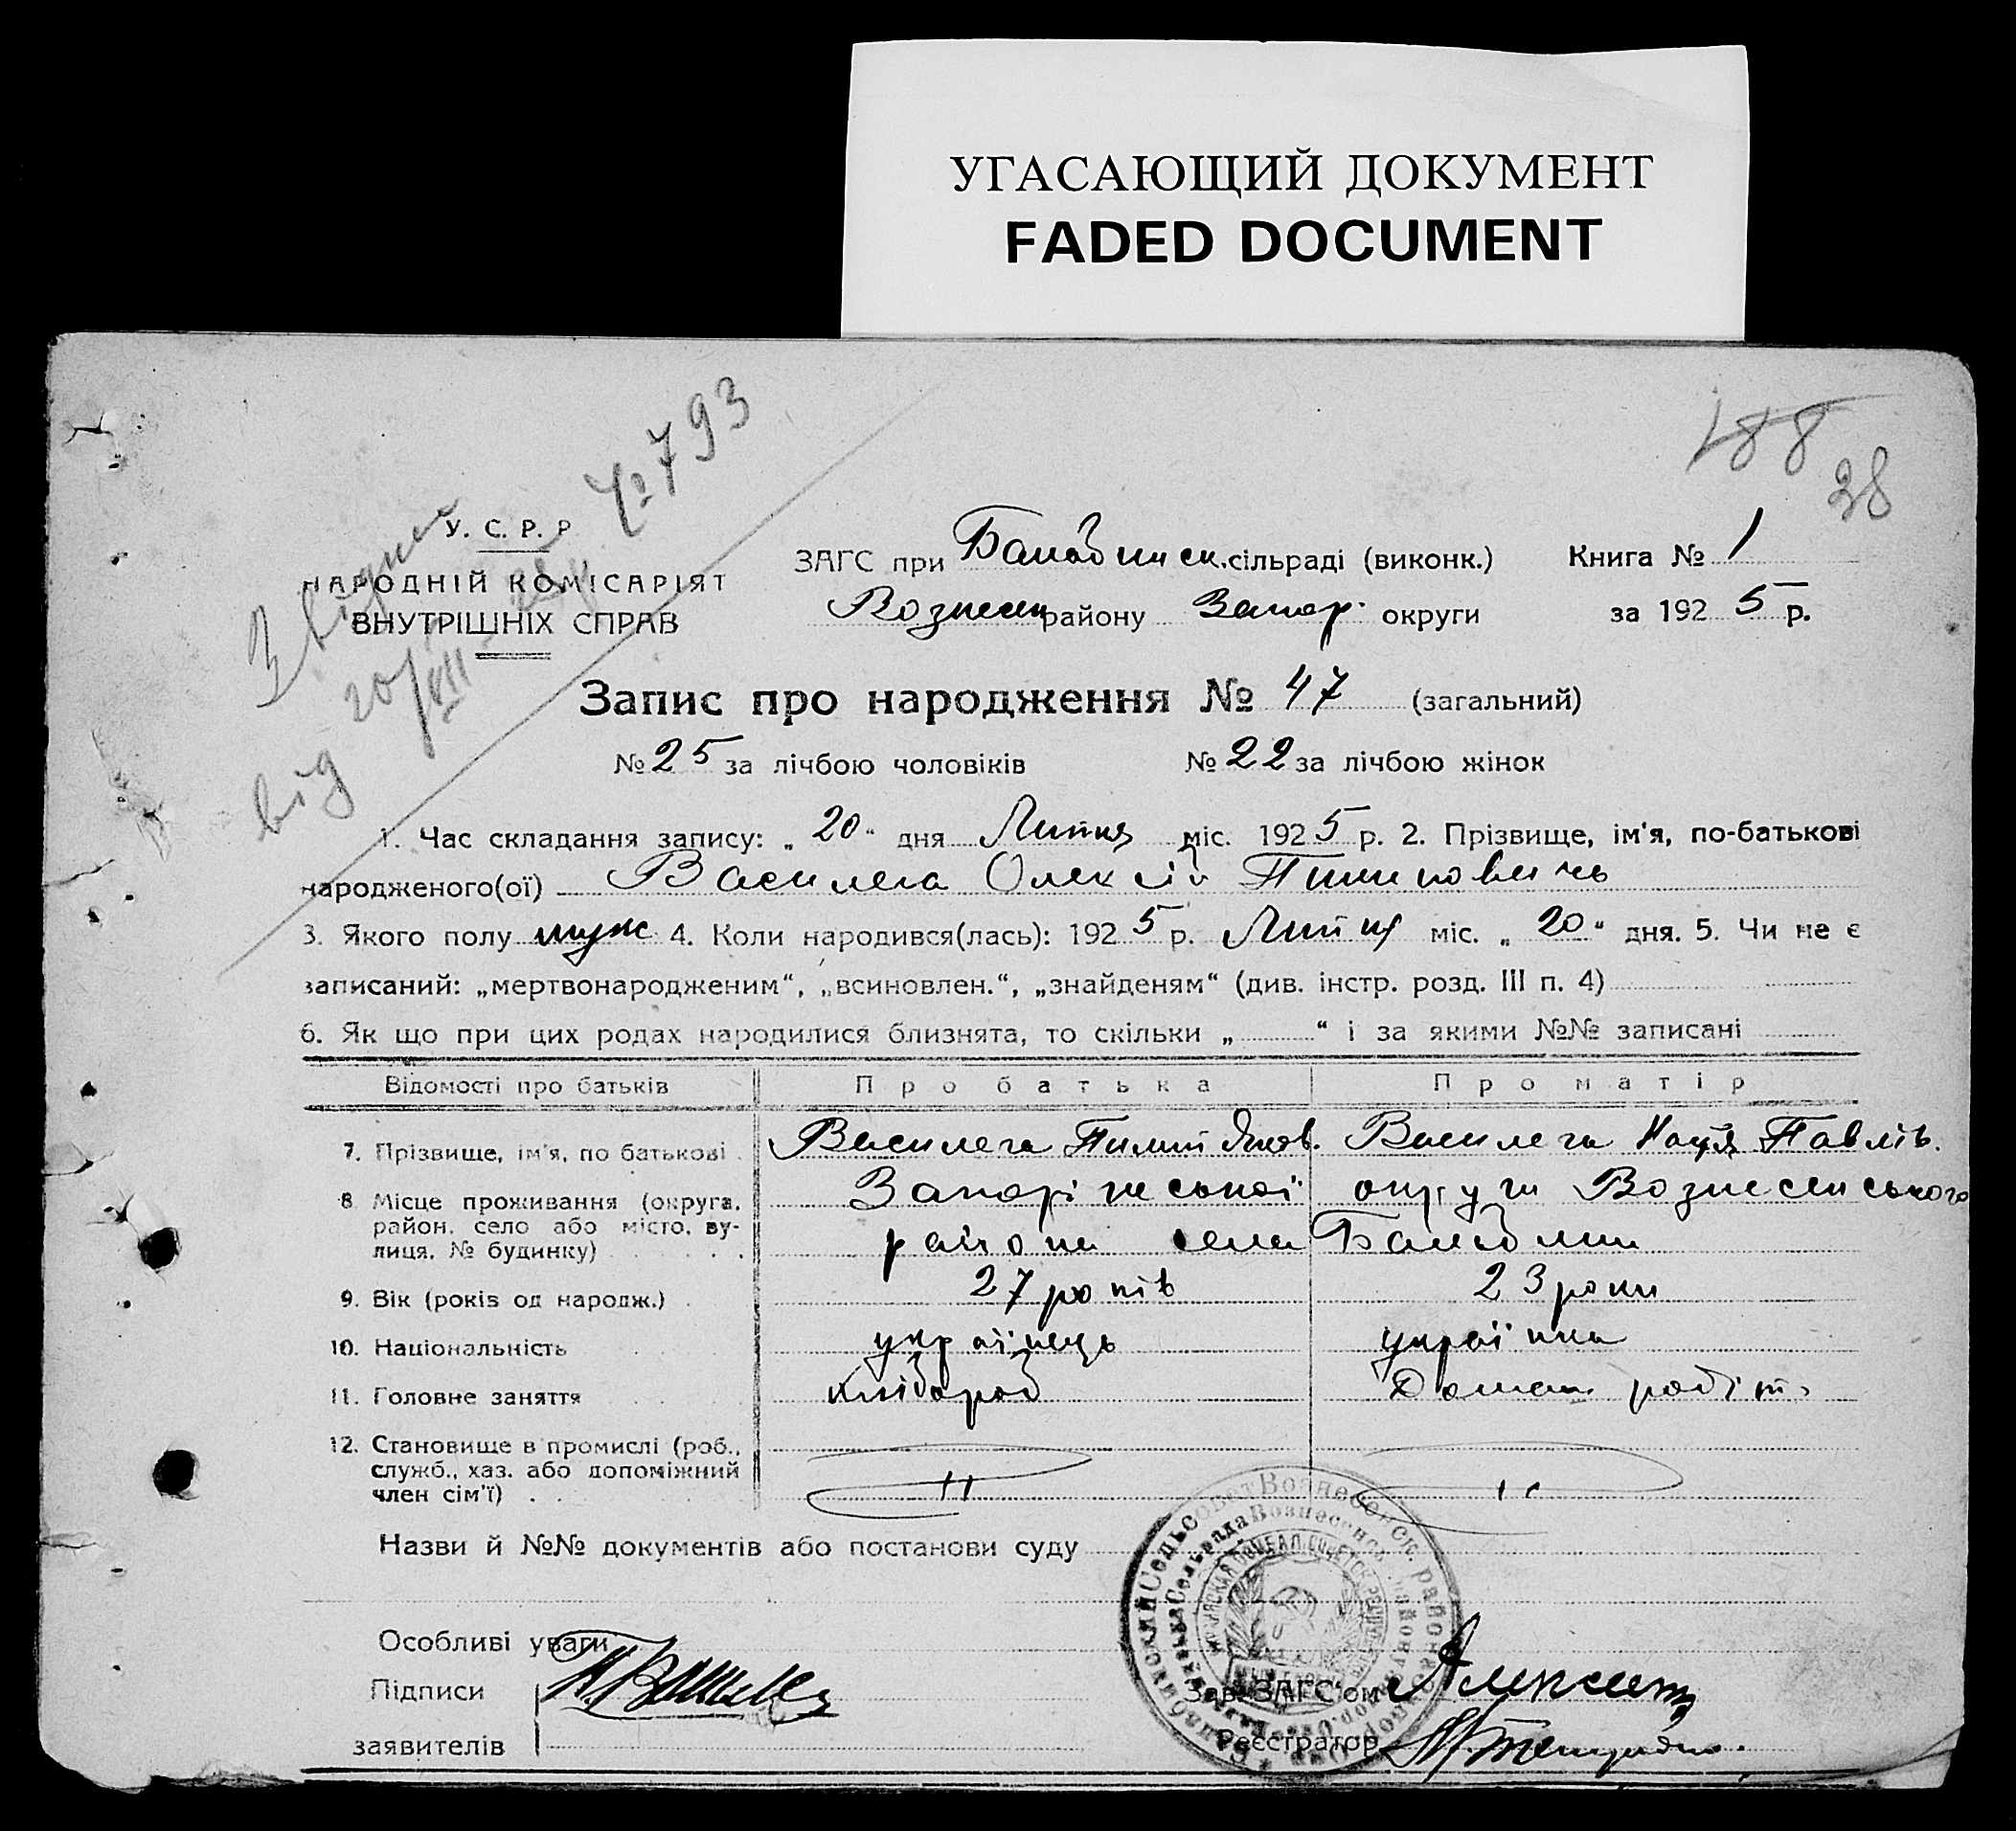 УГАСАЮЩИЙ ДОКУМЕНТ
FADED DOCUMENT
№ 793
188
38
від 20/VIII
У. С. Р. Р.
НАРОДНІЙ КОМІСАРІЯТ
ВНУТРІШНІХ СПРАВ
ЗАГС при Балабинск. сільраді (виконк.) Книга № 1
Вознесен району Запор. округи за 1925 р.
Запис про народження № 47 (загальний)
№ 25 за лічбою чоловіків № 22 за лічбою жінок
1. Час складання запису: „ 20 “ дня Липня міс. 1925 р. 2. Прізвище, ім'я, по-батькові
народженого(ої) Василега Олексій Пилиповичь
3. Якого полу муж 4. Коли народився(лась): 1925 р. Липня міс. „ 20 “ дня. 5. Чи не є
записаний: „мертвонародженим“, „всиновлен.“, „знайденям“ (див. інстр. розд. III п. 4)
6. Як що при цих родах народилися близнята, то скільки „ “ і за якими №№ записані
Відомості про батьків Про батька Про матір
7. Прізвище, ім'я, по батькові Василега Пилип Яков. Василега Павлів.
8 Місце проживання (округа, район, село або місто, вулиця, № будинку) Запоріжської округи Вознесенського
району села Балабина
9. Вік (років од народж.) 27 років 23 роки
10. Національність українець українка
11. Головне заняття хлібороб Домаш робіт.
12. Становище в промислі (роб.,
служб., хаз. або допоміжний
член сім'ї) " "
Назви й №№ документів або постанови суду
Особливі уваги
Підписи
заявителів
Зав. ЗАГС'ом
Реєстратор